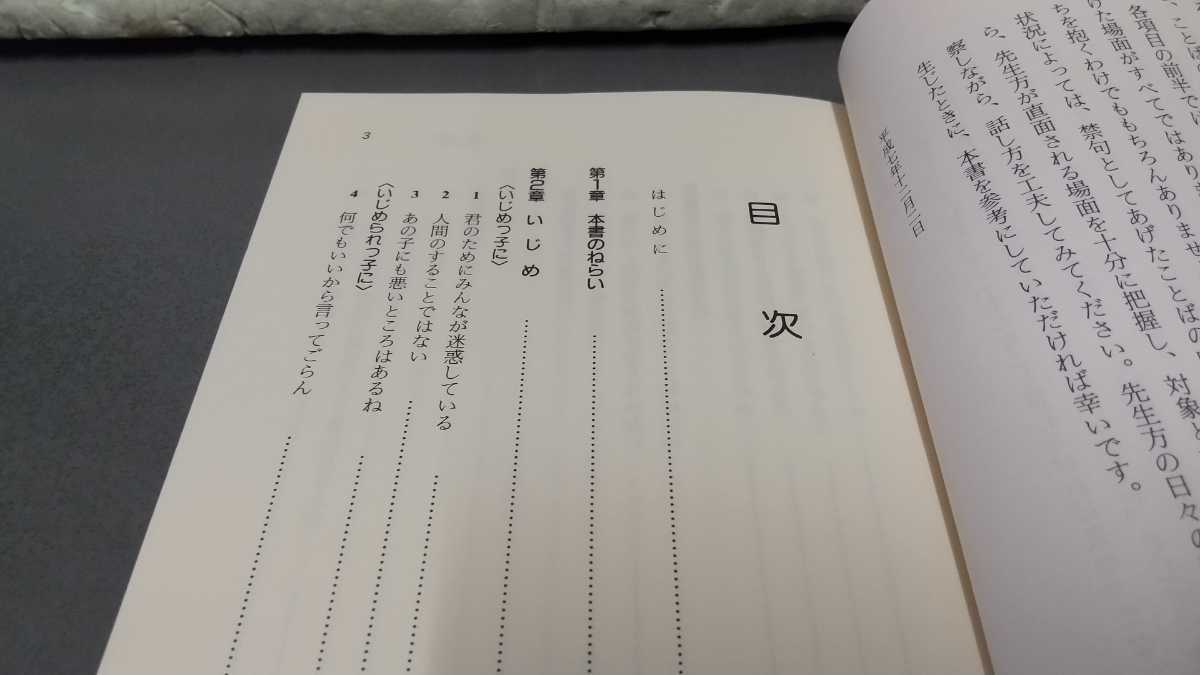 ことば
各項目の前半では
けた場面がすべてではありませ
ちを抱くわけでももちろんありませ
状況によっては、禁句としてあげたことばの
ら、先生方が直面される場面を十分に把握し、対象と
察しながら、話し方を工夫してみてください。先生方の日々の
生じたときに、本書を参考にしていただければ幸いです。
平成七年十二月一日
目次
はじめに
第1章 本書のねらい
第2章 いじめ
〈いじめっ子に〉
1 君のためにみんなが迷惑している
2 人間のすることではない
3 あの子にも悪いところはあるね
〈いじめられっ子に〉
4 何でもいいから言ってごらん
3